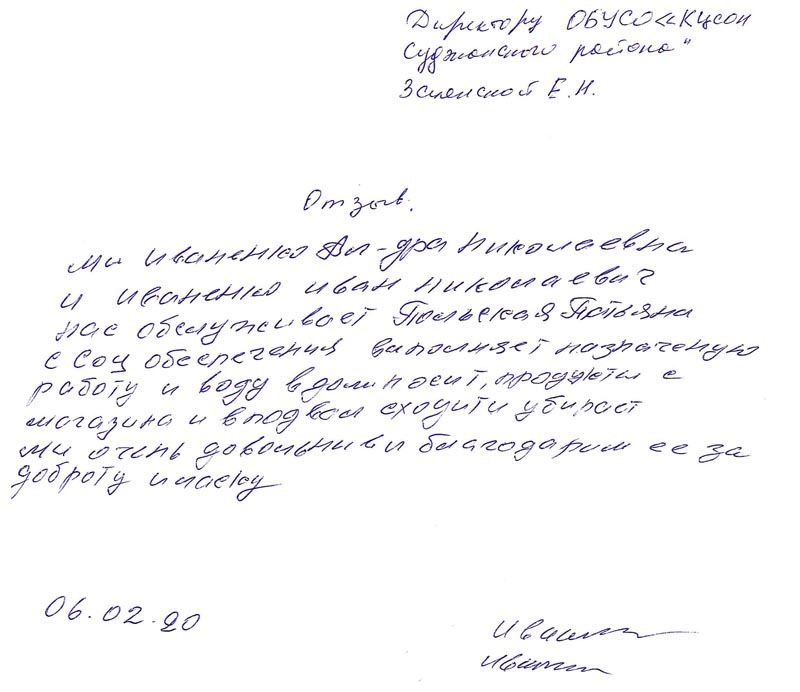 Директору ОБУСО «КЦСОН
Суджанского района"
Заленской Е.Н.
Отзыв.
Ми Иваненко Ал-дра Николаевна
и Иваненко Иван Николаевич
нас обслуживает Польская Татьяна
с Соц обеспечения виполняет назначеную
работу и воду вдом носит, продукти с
магазина и вподвал сходит и убирает
Ми очень довольни и благодарим ее за
доброту и ласку
06.02.20